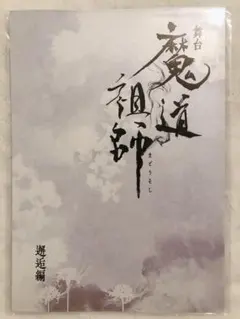 舞台
魔道
祖師
まどうそし
邂逅編